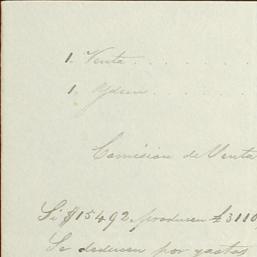 1. Venta . . . . . .
1. Ydem . . . . . .
Comision de Venta
Si $15492. producen £3110
Se deducen por gastos